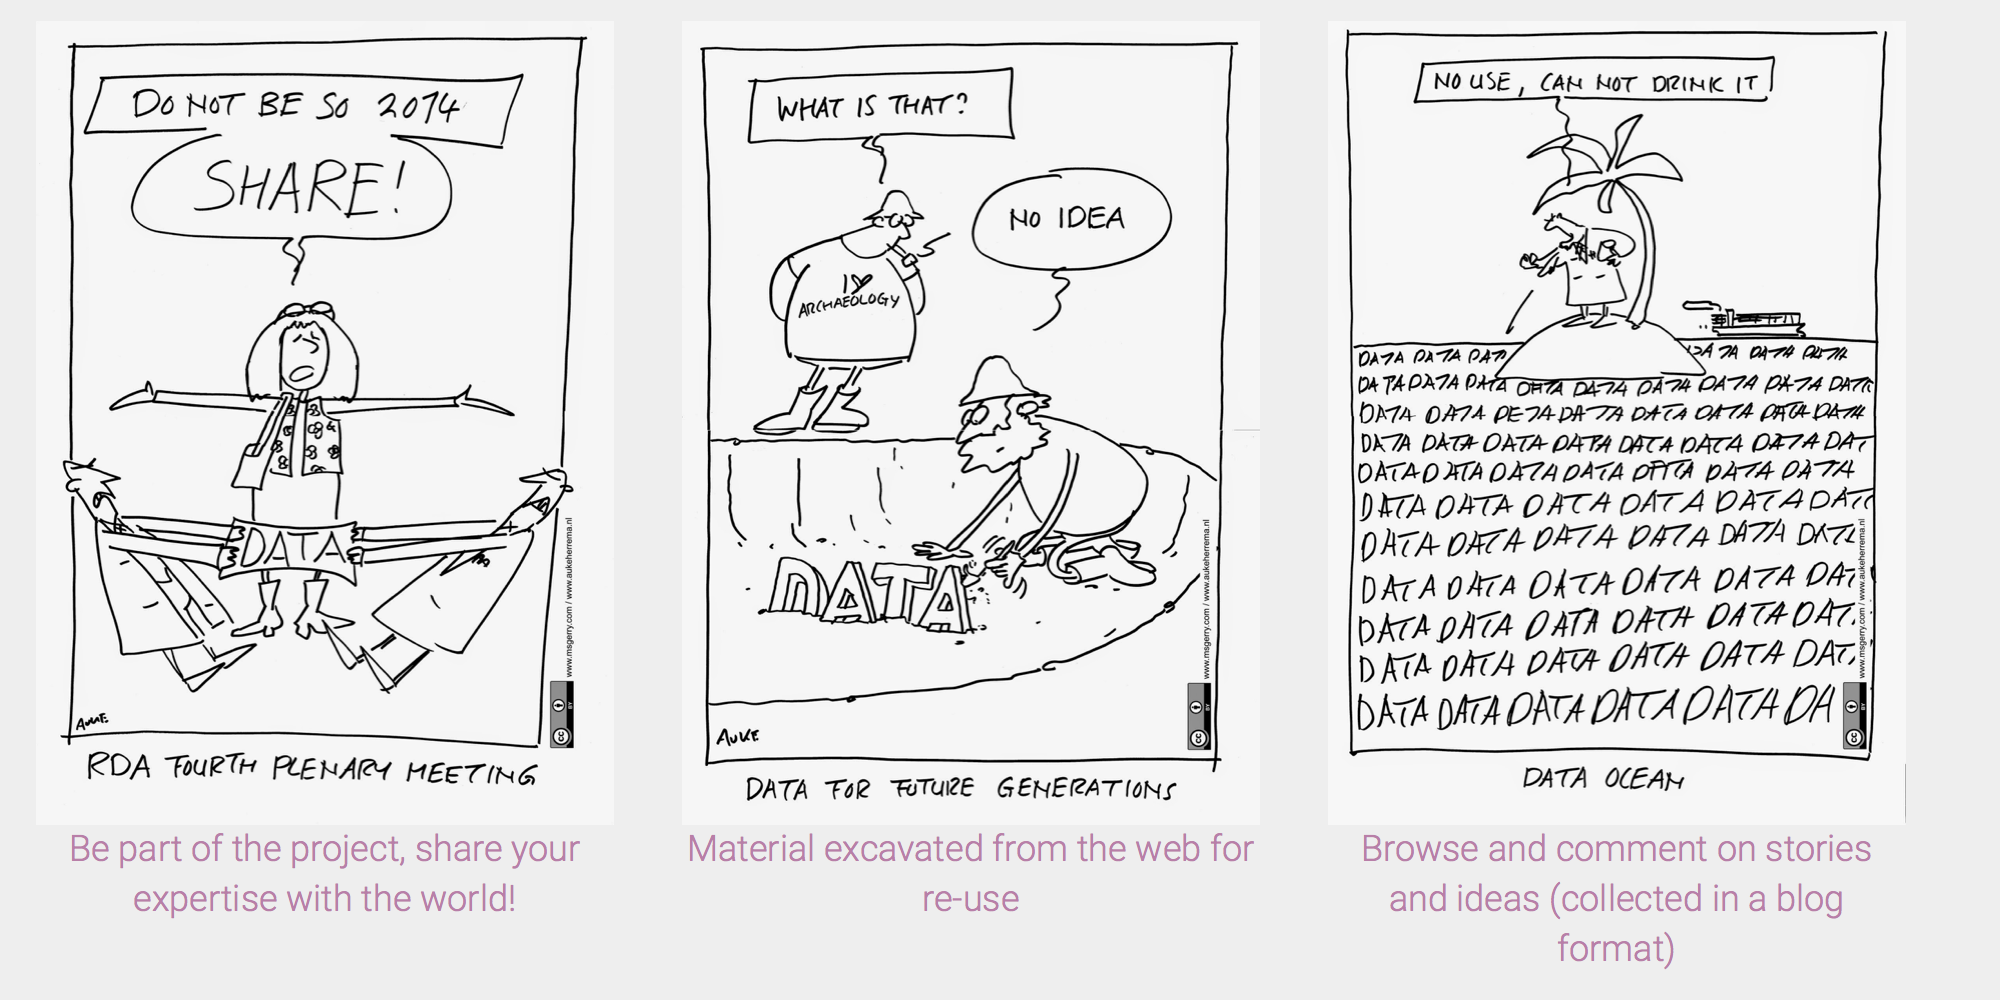 DO NOT BE SO 2014
SHARE!
DATA
AUKE
www.msgerry.com / www.aukeherrema.nl
CC BY
RDA FOURTH PLENARY MEETING
Be part of the project, share your
expertise with the world!
WHAT IS THAT?
NO IDEA
I ♥
ARCHAEOLOGY
DATA
AUKE
www.msgerry.com / www.aukeherrema.nl
CC BY
DATA FOR FUTURE GENERATIONS
Material excavated from the web for
re-use
NO USE, CAN NOT DRINK IT
DATA DATA DAT DATA DATA DATA
DATA DATA DATA DATA DATA DATA DATA DATA DATA
DATA DATA DATA DATA DATA DATA DATA DATA
DATA DATA DATA DATA DATA DATA DATA DAT
DATA DATA DATA DATA DATA DATA DATA
DATA DATA DATA DATA DATA DATA
DATA DATA DATA DATA DATA DATA
DATA DATA DATA DATA DATA DAT
DATA DATA DATA DATA DATA DAT
DATA DATA DATA DATA DATA DAT
DATA DATA DATA DATA DATA DA
www.msgerry.com / www.aukeherrema.nl
CC BY
DATA OCEAN
Browse and comment on stories
and ideas (collected in a blog
format)